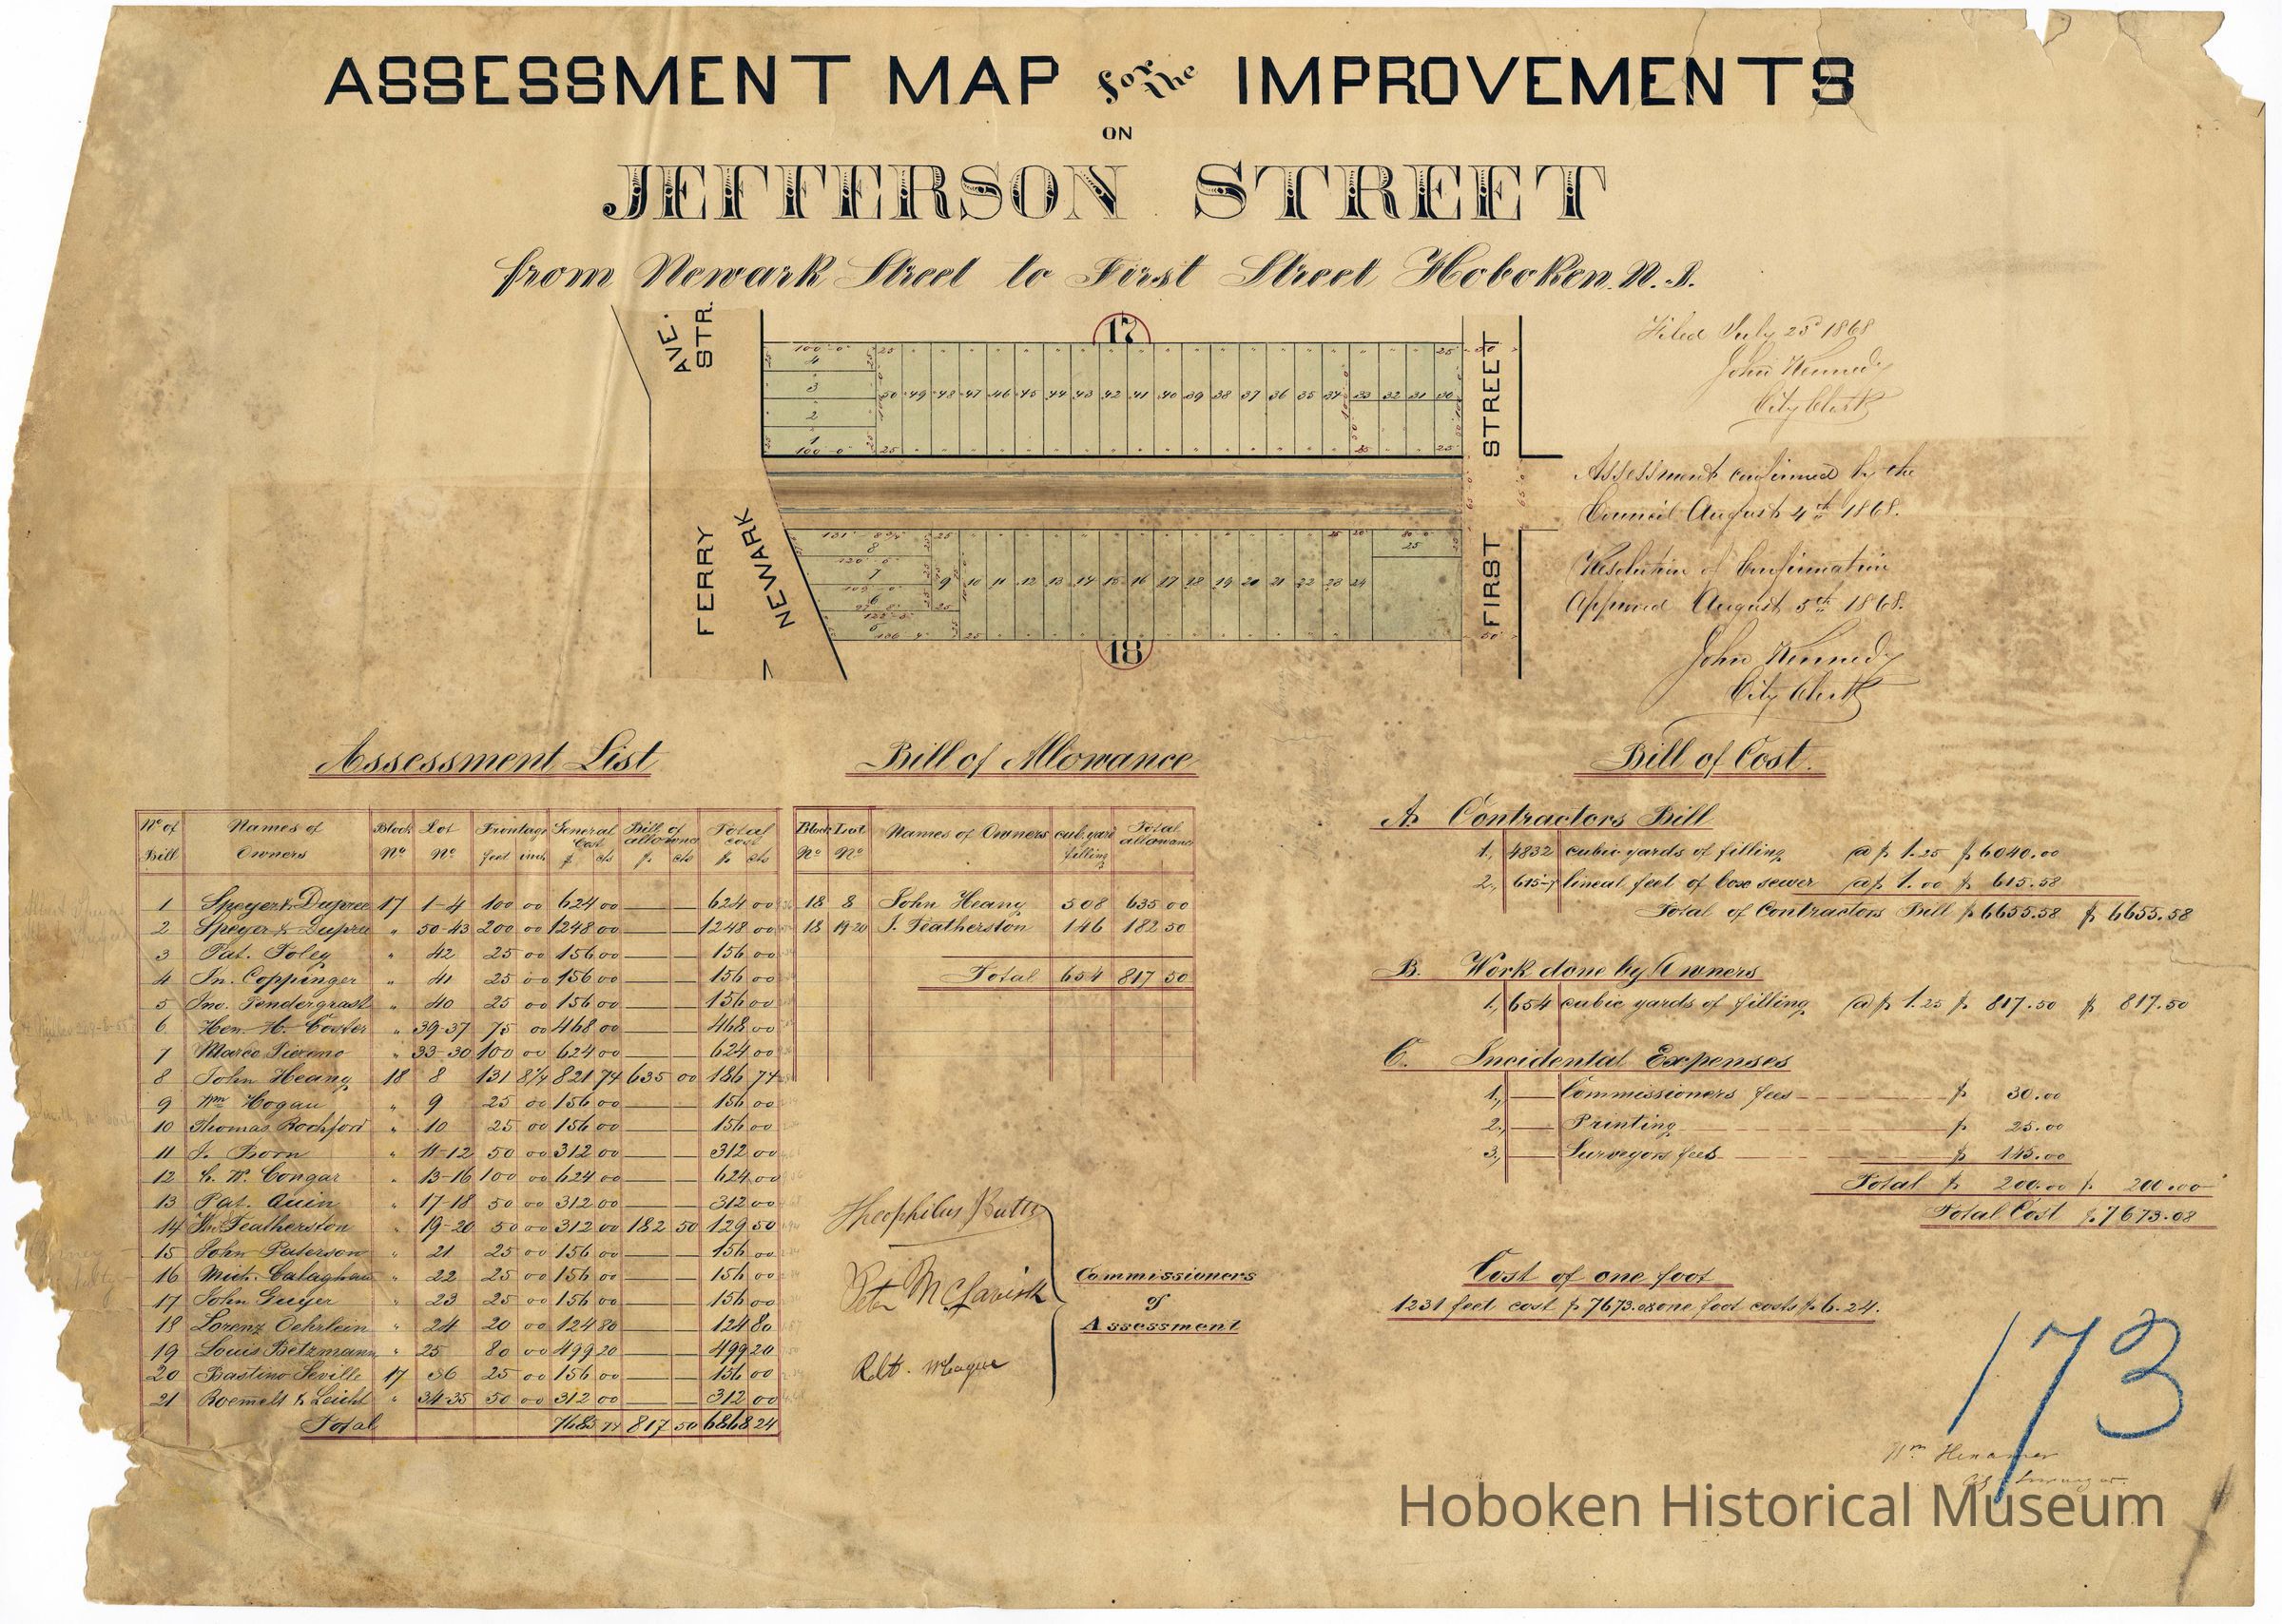 ASSESSMENT MAP for the IMPROVEMENTS
ON
JEFFERSON STREET
from Newark Street to First Street Hoboken. N. J.
AVE. STR.
FERRY
NEWARK
FIRST STREET
17
100 0
4
3
2
1
100 0
50 49 48 47 46 45 44 43 42 41 40 39 38 37 36 35 34 33 32 31 30
8
7
6
5
9 10 11 12 13 14 15 16 17 18 19 20 21 22 23 24
25
18
Filed July 23d 1868
John Kennedy
City Clerk
Assessment confirmed by the
Council August 4th 1868.
Resolution of Confirmation
Approved August 5th 1868.
John Kennedy
City Clerk
Assessment List
No of Bill Names of Owners Block No Lot No Frontage feet inch General Cost $ cts Bill of allowance $ cts Total cost $ cts
1 Speyer & Dupree 17 1-4 100 00 624 00 — — 624 00
2 Speyer & Dupree " 50-43 200 00 1248 00 — — 1248 00
3 Pat. Foley " 42 25 00 156 00 — — 156 00
4 Jn. Coppinger " 41 25 00 156 00 — — 156 00
5 Jno. Pendergrast " 40 25 00 156 00 — — 156 00
6 Hen. H. Coster " 39-37 75 00 468 00 — — 468 00
7 Marco " 33-30 100 00 624 00 — — 624 00
8 John Heany 18 8 131 8¾ 821 74 635 00 186 74
9 Wm Hogan " 9 25 00 156 00 — — 156 00
10 Thomas Rochford " 10 25 00 156 00 — — 156 00
11 J. Born " 11-12 50 00 312 00 — — 312 00
12 C. W. Congar " 13-16 100 00 624 00 — — 624 00
13 Pat. Quin " 17-18 50 00 312 00 — — 312 00
14 Jn. Featherston " 19-20 50 00 312 00 182 50 129 50
15 John Paterson " 21 25 00 156 00 — — 156 00
16 Mich. Calaghan " 22 25 00 156 00 — — 156 00
17 John Guyer " 23 25 00 156 00 — — 156 00
18 Lorenz Oehrlein " 24 20 00 124 80 — — 124 80
19 Louis Betzmann " 25 80 00 499 20 — — 499 20
20 Bastino Seville 17 36 25 00 156 00 — — 156 00
21 Roemelt & Leicht " 34-35 50 00 312 00 — — 312 00
Total 7685 74 817 50 6868 24
Bill of Allowance
Block No Lot No Names of Owners cub. yard filling Total allowance
18 8 John Heany 508 635 00
18 19-20 J. Featherston 146 182 50
Total 654 817 50
Theophilus Butts
Peter
Robt.
Commissioners
of
Assessment
Bill of Cost.
A. Contractors Bill
1., 4832 cubic yards of filling @ $ 1.25 $ 6040.00
2., 615-7 lineal feet of box sewer @ $ 1.00 $ 615.58
Total of Contractors Bill $ 6655.58 $ 6655.58
B. Work done by Owners
1., 654 cubic yards of filling @ $ 1.25 $ 817.50 $ 817.50
C. Incidental Expenses
1., — Commissioners fees $ 30.00
2., — Printing $ 25.00
3., — Surveyors fees $ 145.00
Total $ 200.00 $ 200.00
Total Cost $ 7673.08
Cost of one foot
1231 feet cost $ 7673.08 one foot costs $ 6.24.
173
Wm
Hoboken Historical Museum